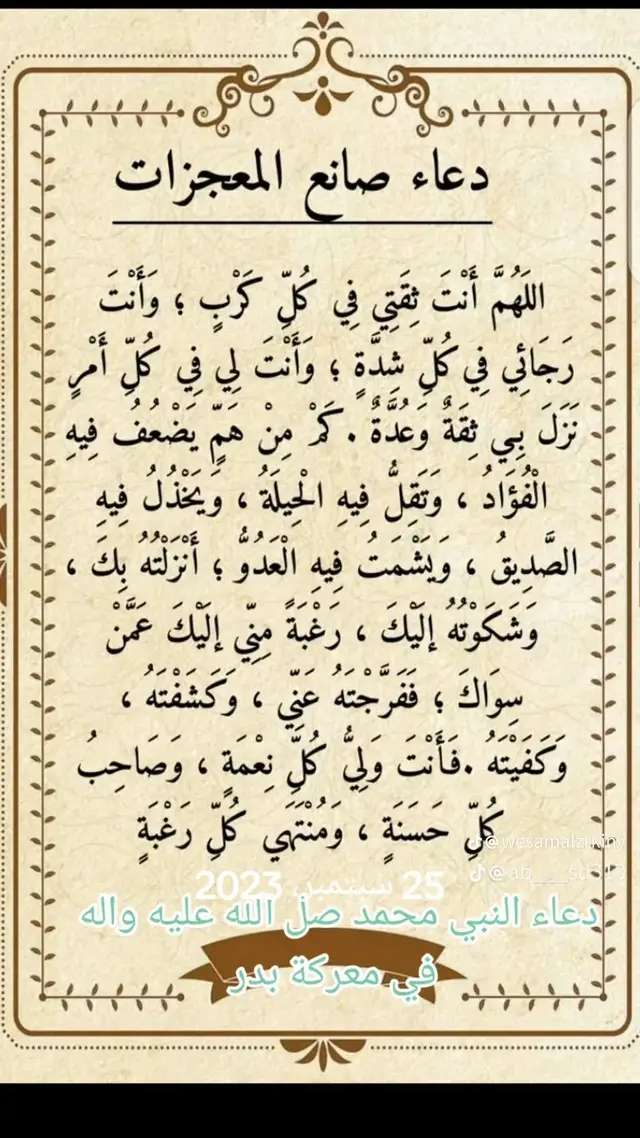 دعاء صانع المعجزات
اللَهُمَّ أَنْتَ ثِقَتِي فِي كُلِّ كَرْبٍ ؛ وَأَنْتَ
رَجَائِي فِي كُلِّ شِدَّةٍ ؛ وَأَنْتَ لِي فِي كُلِّ أَمْرٍ
نَزَلَ بِي ثِقَةٌ وَعُدَّةٌ . كَمْ مِنْ هَمٍّ يَضْعُفُ فِيهِ
الْفُؤَادُ ، وَتَقِلُّ فِيهِ الْحِيلَةُ ، وَيَخْذُلُ فِيهِ
الصَّدِيقُ ، وَيَشْمَتُ فِيهِ الْعَدُوُّ ؛ أَنْزَلْتُهُ بِكَ ،
وَشَكَوْتُهُ إلَيْكَ ، رَغْبَةً مِنِّي إلَيْكَ عَمَّنْ
سِوَاكَ ؛ فَفَرَّجْتَهُ عَنِّي ، وَكَشَفْتَهُ ،
وَكَفَيْتَهُ .فَأَنْتَ وَلِيُّ كُلِّ نِعْمَةٍ ، وَصَاحِبُ
كُلِّ حَسَنَةٍ ، وَمُنْتَهَي كُلِّ رَغْبَةٍ
@wcsamalzirkiny
25 سبتمبر، 2023
دعاء النبي محمد صل الله عليه واله
في معركة بدر